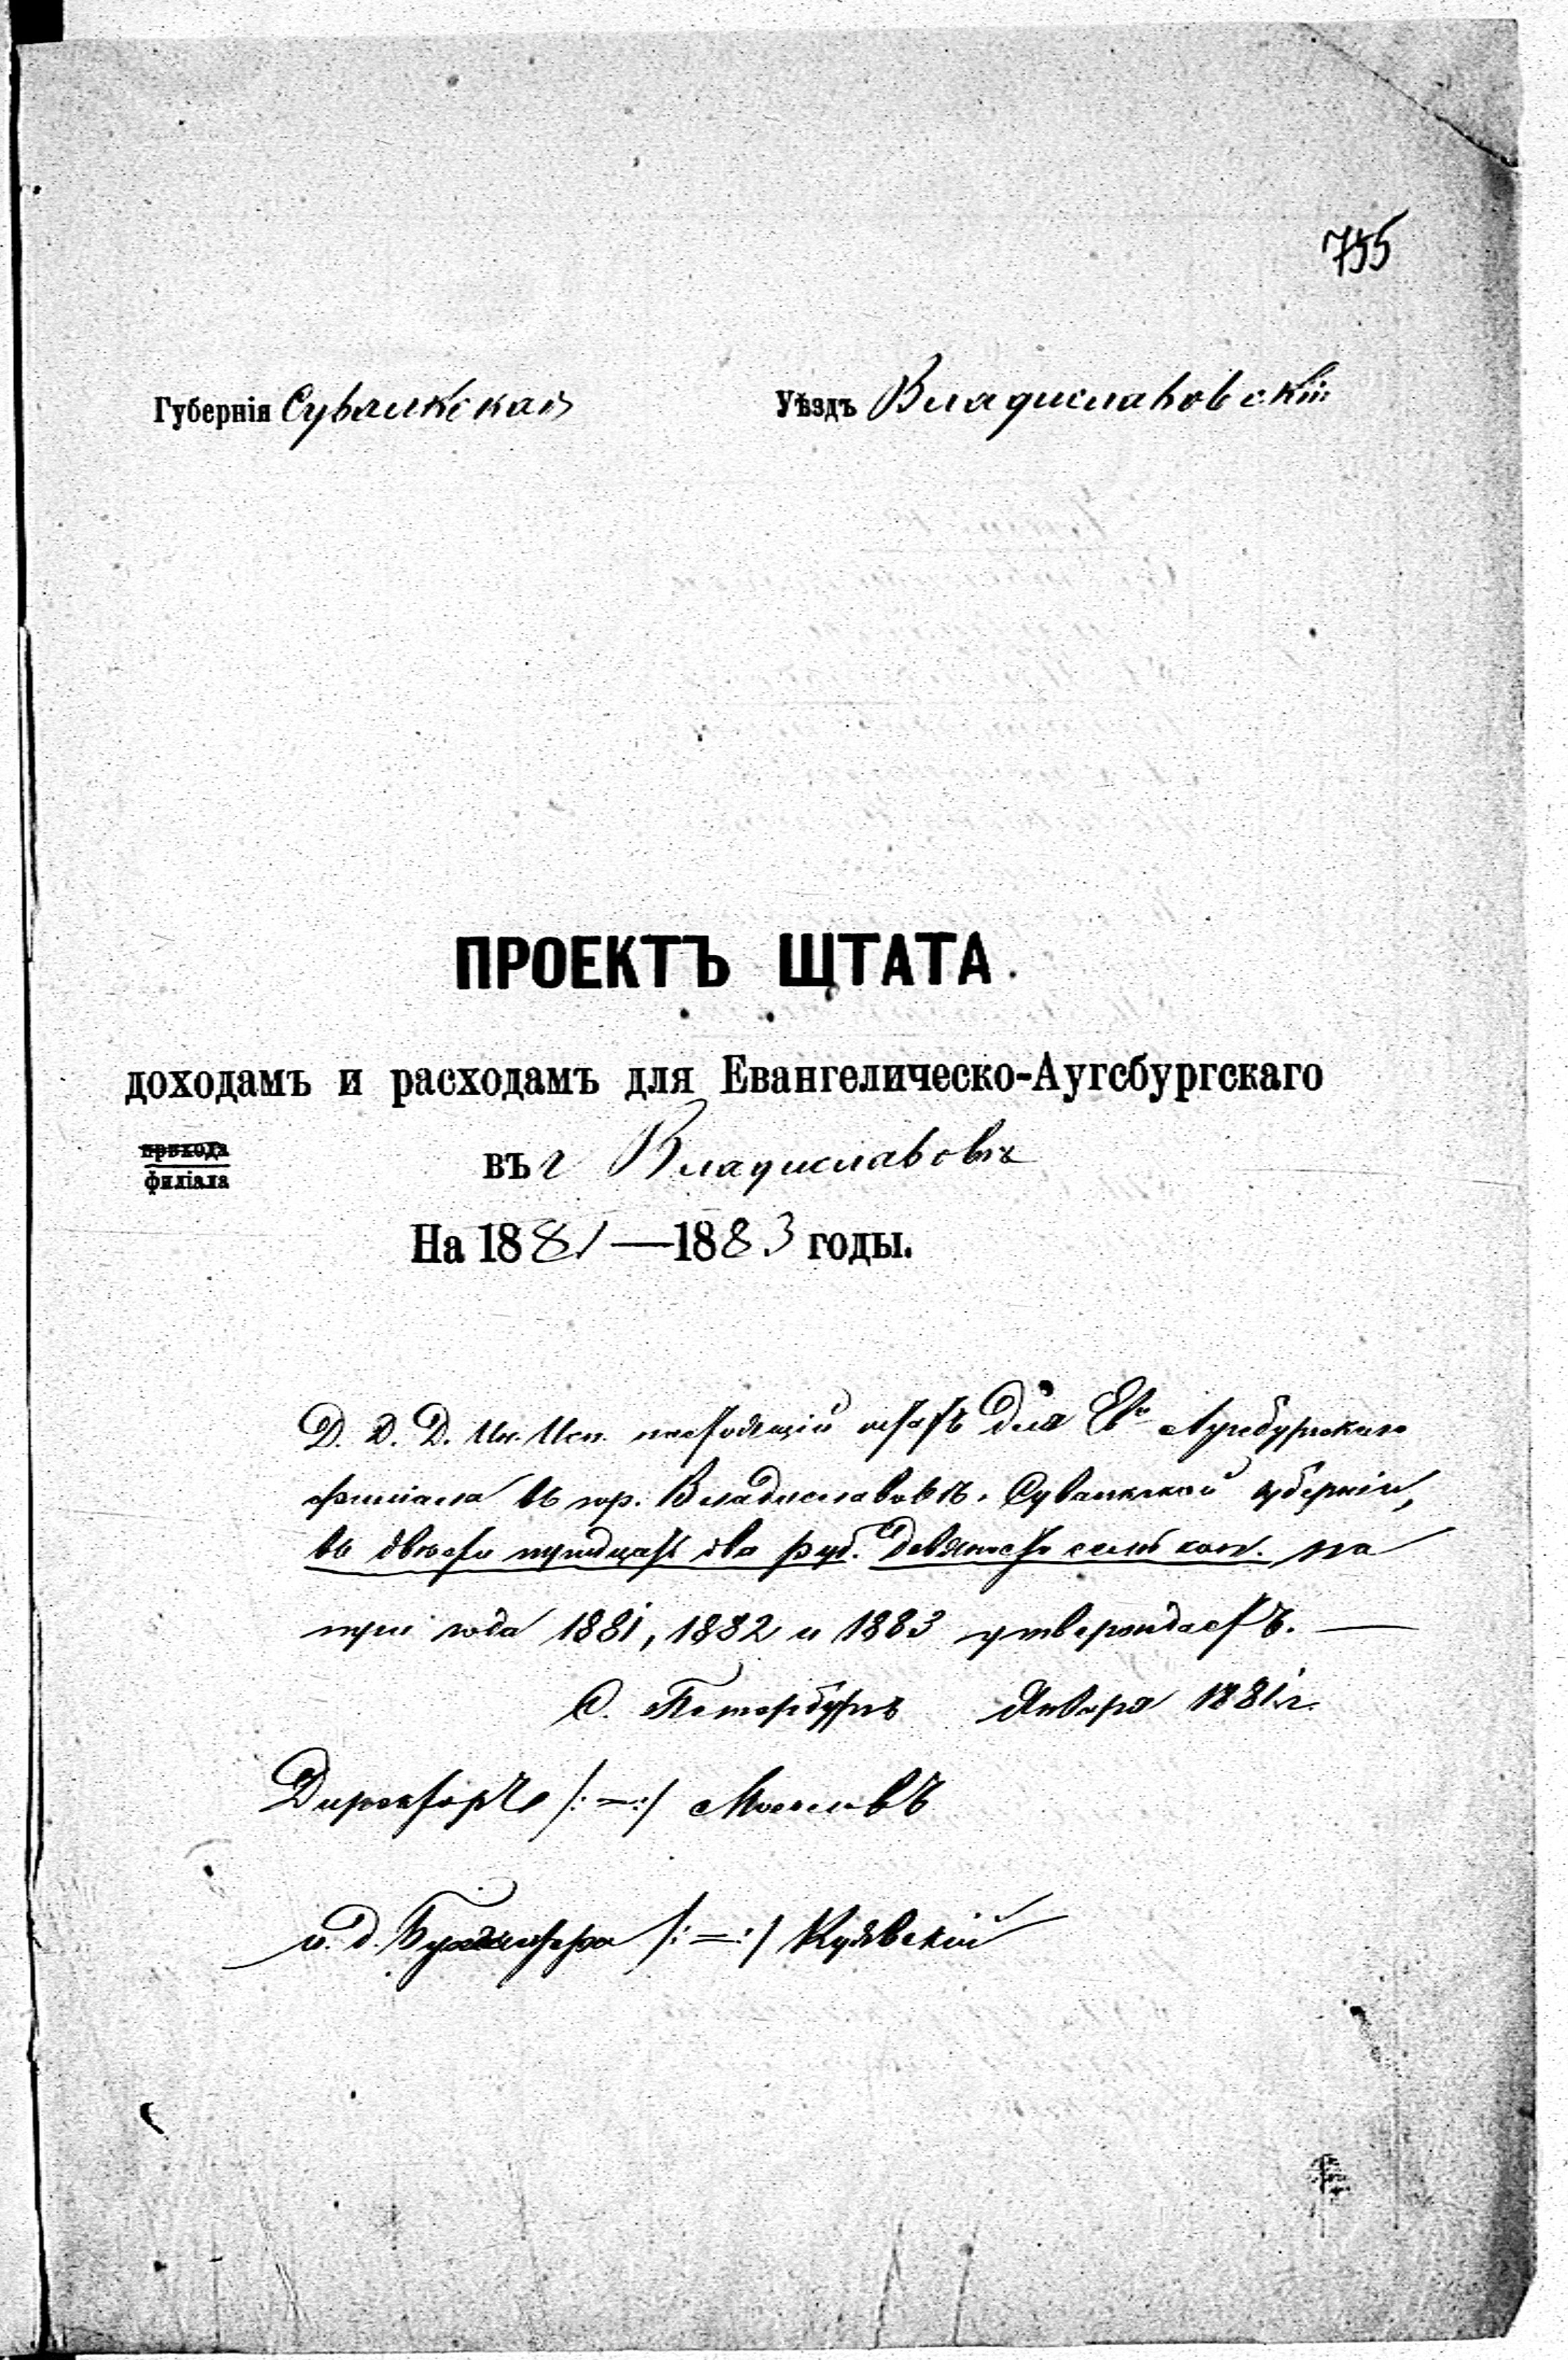 755
Губернія Сувалкская Уѣздъ Владиславовскій
ПРОЕКТЪ ШТАТА
доходамъ и расходамъ для Евангелическо-Аугсбургскаго
прихода
филіала
въ г Владиславовѣ
На 1881—1883 годы.
Д. Д. Д. Ин. Исп. настоящій штатъ для Ев. Аугсбургскаго
филіала въ гор. Владиславовѣ, Сувалкской губерніи,
въ двѣсти тридцать два руб. девяносто семь коп. на
три года 1881, 1882 и 1883 утверждаетъ. —
С. Петербургъ Января 1881 г.
Директоръ /:=:/ Мосоловъ
и. д. Бухгалтера /:=:/ Куявскій